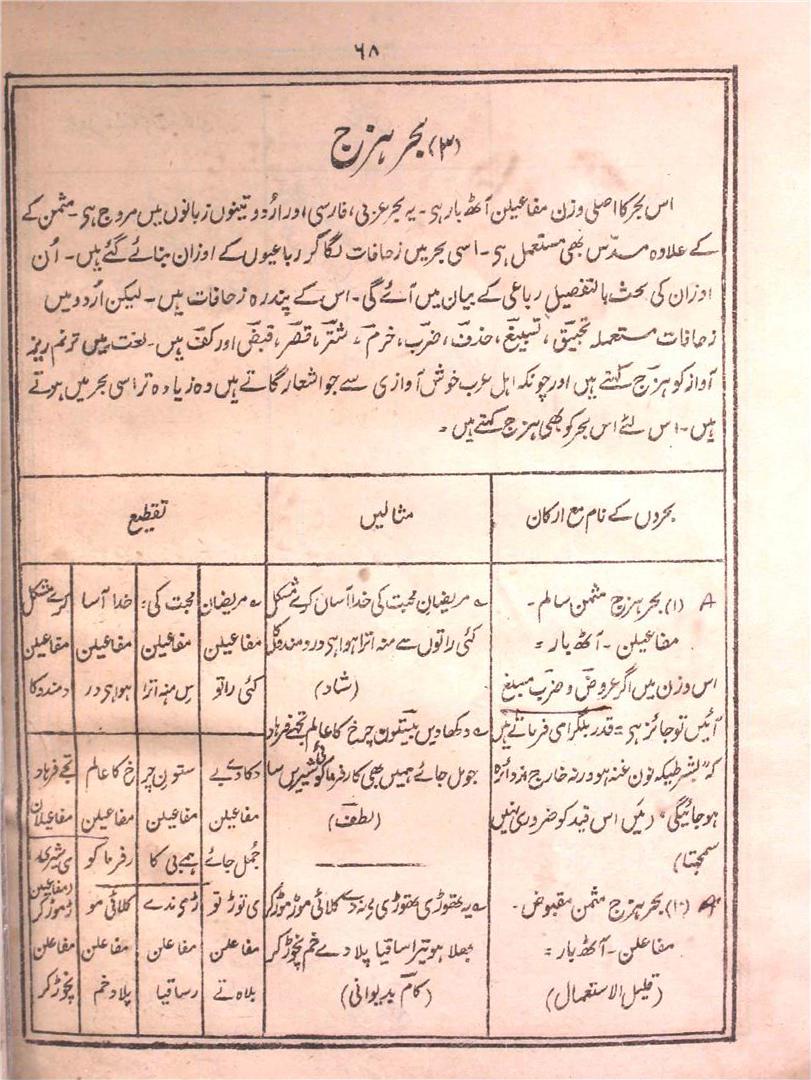 ۶۸
(۳) بحر ہزج
اس بحر کا اصلی وزن مفاعیلن آٹھ بار ہی۔ یہ بحر عربی، فارسی اور اُردو تینوں زبانوں میں مروج ہی۔ مثمن کے
کے علاوہ مسدّس بھی مستعمل ہی۔ اسی بحر میں زحافات لگا کر رباعیوں کے اوزان بنائے گئے ہیں۔ اُن
اوزان کی بحث بالتفصیل رباعی کے بیان میں آئے گی۔ اس کے پندرہ زحافات ہیں۔ لیکن اُردو میں
زحافات مستعملہ تخبیق، تسبیغ، حذف، ضرب، خرم، شتر، قصر، قبض اور کف ہیں۔ لغت میں ترنم ریز
آواز کو ہزج کہتے ہیں اور چونکہ اہل عرب خوش آوازی سے جو اشعار گاتے ہیں وہ زیادہ تر اسی بحر میں ہوتے
ہیں۔ اس لئے اس بحر کو بھی ہزج کہتے ہیں۔
بحروں کے نام مع ارکان
مثالیں
تقطیع
A (۱) بحر ہزج مثمن سالم۔
مفاعیلن۔ آٹھ بار =
اس وزن میں اگر عروض و ضرب مسبغ
آئیں تو جائز ہی = قدر بلگرامی فرماتے ہیں
کہ "بشرطیکہ نون غنہ ہو ورنہ خارج از دائرہ
ہو جائیگی" (میں اس قید کو ضروری نہیں
سمجھتا)
مریضانِ محبت کی خدا آساں کرے مشکل
کئی راتوں سے منہ اترا ہوا ہی دردمندوں کا
(شاد)
دکھا دیں بیستون چرخ کا عالم تجھے فرہاد
جو مل جائے ہمیں بھی کارفرما کوئی شیریں سا
(لطف)
مریضان | محبت کی | خدا آسا | کرے مشکل
مفاعیلن | مفاعیلن | مفاعیلن | مفاعیلن
کئی راتو | س منہ اترا | ہوا ہی در | دمندو کا
دکا دے بے | ستونِ چر | خ کا عالم | تجے فرہاد
مفاعیلن | مفاعیلن | مفاعیلن | مفاعیلان
جُمل جائے | ہمے بی کا | رفرما کو | ی شیری
(مفاعیلن)
A (۲) بحر ہزج مثمن مقبوض۔
مفاعلن۔ آٹھ بار =
(قلیل الاستعمال)
یہ تھوڑی تھوڑی مے نہ دے کلائی موڑ موڑ کر
بھلا ہو تیرا ساقیا پلا دے خم نچوڑ کر
(کام بدیوانی)
ی توڑ تو | ڑی ندے | کلائی مو | ڑموڑ کر
مفاعلن | مفاعلن | مفاعلن | مفاعلن
بلاہ تے | رساقیا | پلاد خم | نچوڑ کر